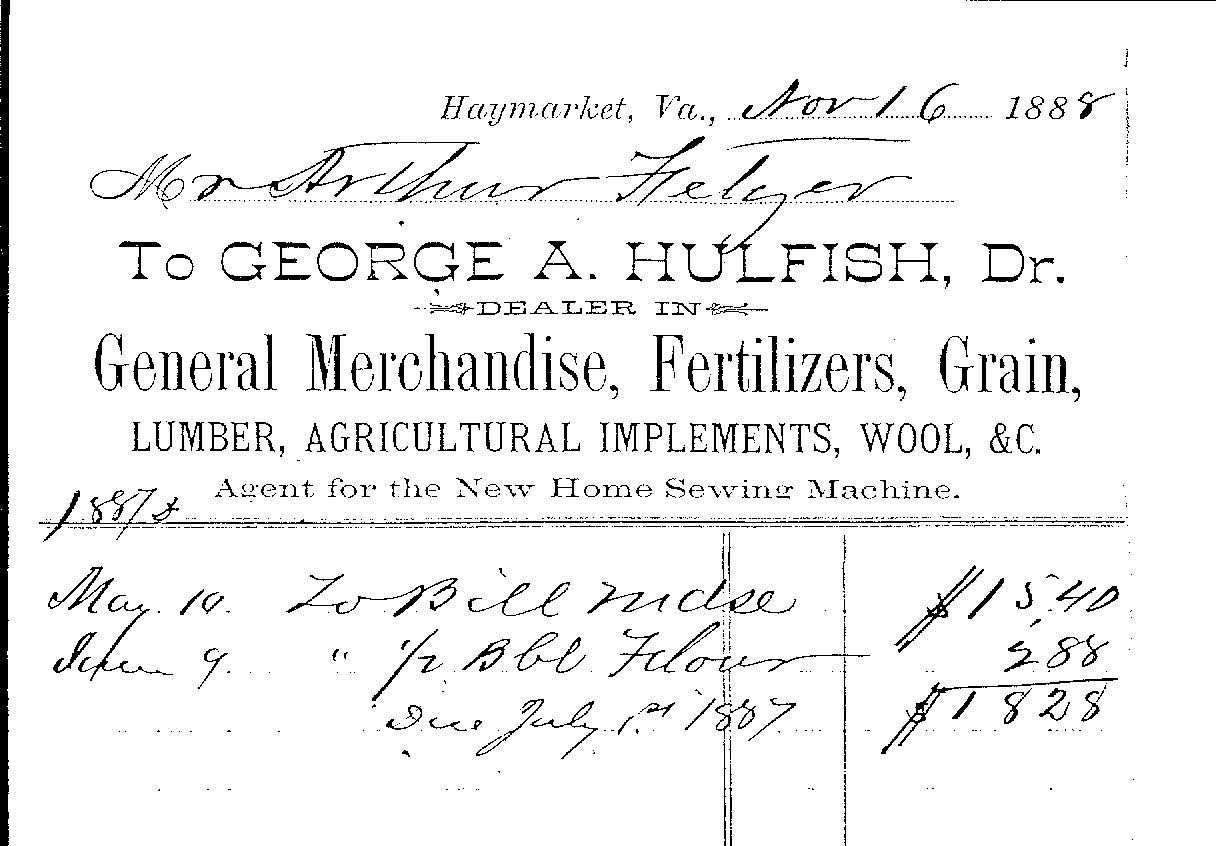 Haymarket, Va., Nov 16 1888
Mr Arthur Fletger
To GEORGE A. HULFISH, Dr.
DEALER IN
General Merchandise, Fertilizers, Grain,
LUMBER, AGRICULTURAL IMPLEMENTS, WOOL, &C.
Agent for the New Home Sewing Machine.
1887
May 10. To Bill Mdse $15.40
June 9. " 1/2 Bbl Flour 288
Due July 1st 1887 $1828